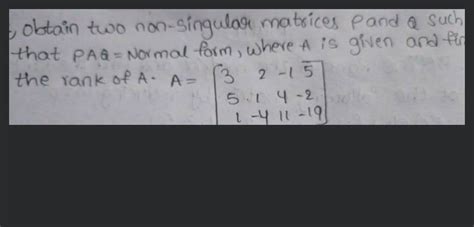 Obtain two non-singular matrices P and Q such
that PAQ = Normal form, where A is given and
the rank of A. A = [3 2 -1 5
5 1 4 -2
1 -4 11 -19]